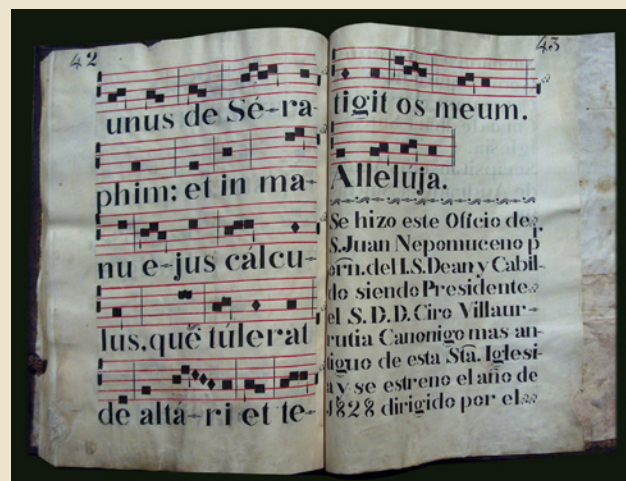 42
unus de Sé-ra-
phim: et in ma-
nu e-jus cálcu-
lus, què túlerat
de altá-ri et te-
43
tigit os meum.
Allelúja.
Se hizo este Oficio de
S. Juan Nepomuceno p
orn. del I. S. Dean y Cabil-
do siendo Presidente
el S. D. D. Ciro Villaur-
rutia Canonigo mas an-
tiguo de esta Sta. Iglesi-
a y se estreno el año de
1828 dirigido por el